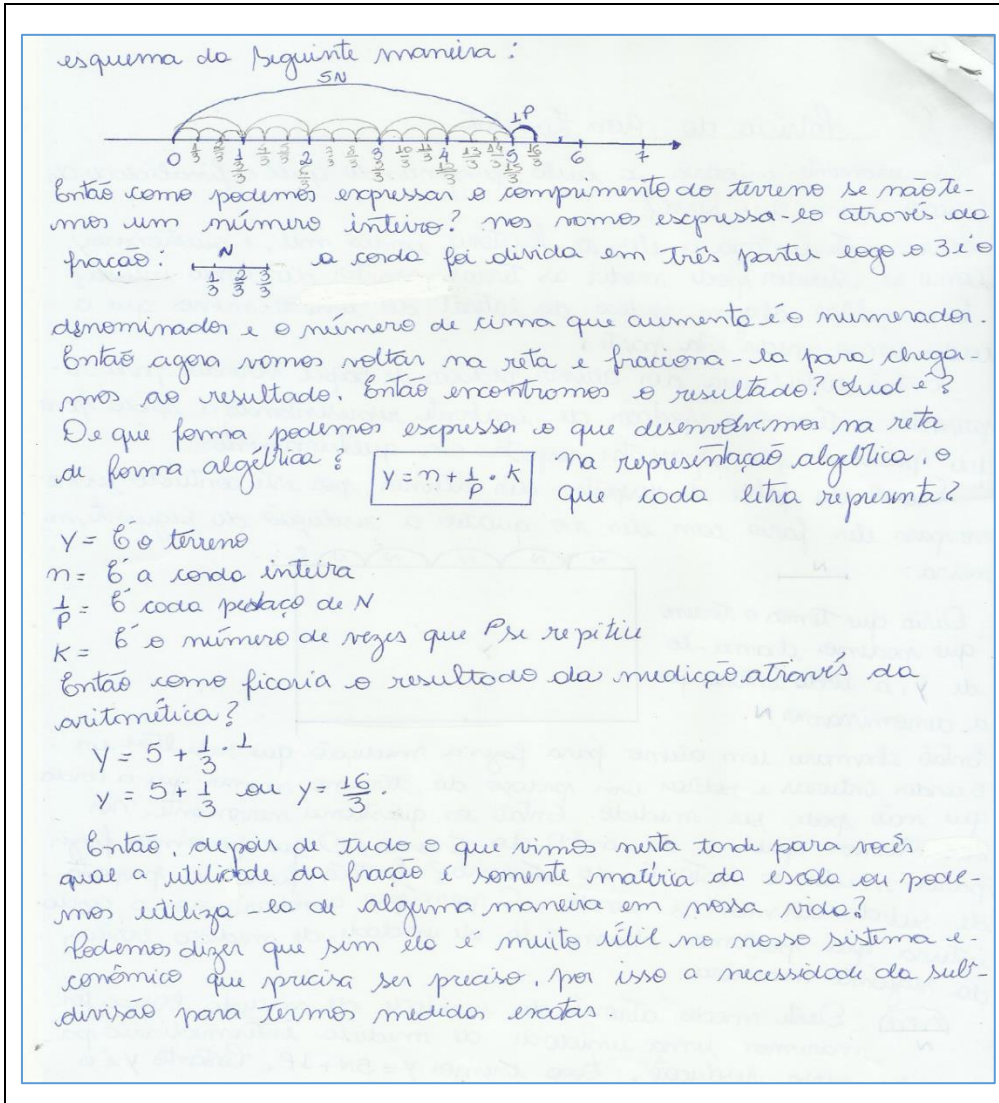 esquema da seguinte maneira:
5N
1P
1/3 2/3 4/3 5/3 7/3 8/3 10/3 11/3 13/3 14/3 16/3
0 1 2 3 4 5 6 7
3/3 6/3 9/3 12/3 15/3
Então como podemos expressar o comprimento do terreno se não te-
mos um número inteiro? nos vamos espressa-lo através da
fração: N a corda foi divida em três partes logo o 3 é o
1/3 2/3 3/3
denominador e o número de cima que aumenta é o numerador.
Então agora vamos voltar na reta e fraciona-la para chega-
mos ao resultado. Então encontramos o resultado? Qual é?
De que forma podemos espressar o que desenvolvemos na reta
de forma algébrica? y = n + 1/P · k Na representação algébrica o
que cada letra representa?
Y = É o terreno
n = É a corda inteira
1/P = É cada pedaço de N
K = É o número de vezes que P se repitiu
Então como ficaria o resultado da medição através da
aritmética?
y = 5 + 1/3 · 1
y = 5 + 1/3 ou y = 16/3.
Então, depois de tudo o que vimos nesta tarde para vocês
qual a utilidade da fração é somente matéria da escola ou pode-
mos utiliza-la de alguma maneira em nossa vida?
Podemos dizer que sim ela é muito útil no nosso sistema e-
conômico que precisa ser preciso, por isso a necessidade da sub-
divisão para termos medidas exatas.